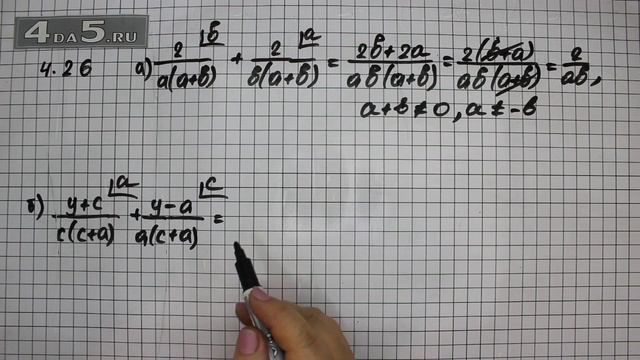 4DA5.RU
4.26 а) 2/(a(a+b)) ⌊b + 2/(b(a+b)) ⌊a = (2b+2a)/(ab(a+b)) = 2(b+a)/(ab(a+b)) = 2/(ab),
a+b≠0, a≠-b
б) (y+c)/(c(c+a)) ⌊a + (y-a)/(a(c+a)) ⌊c =